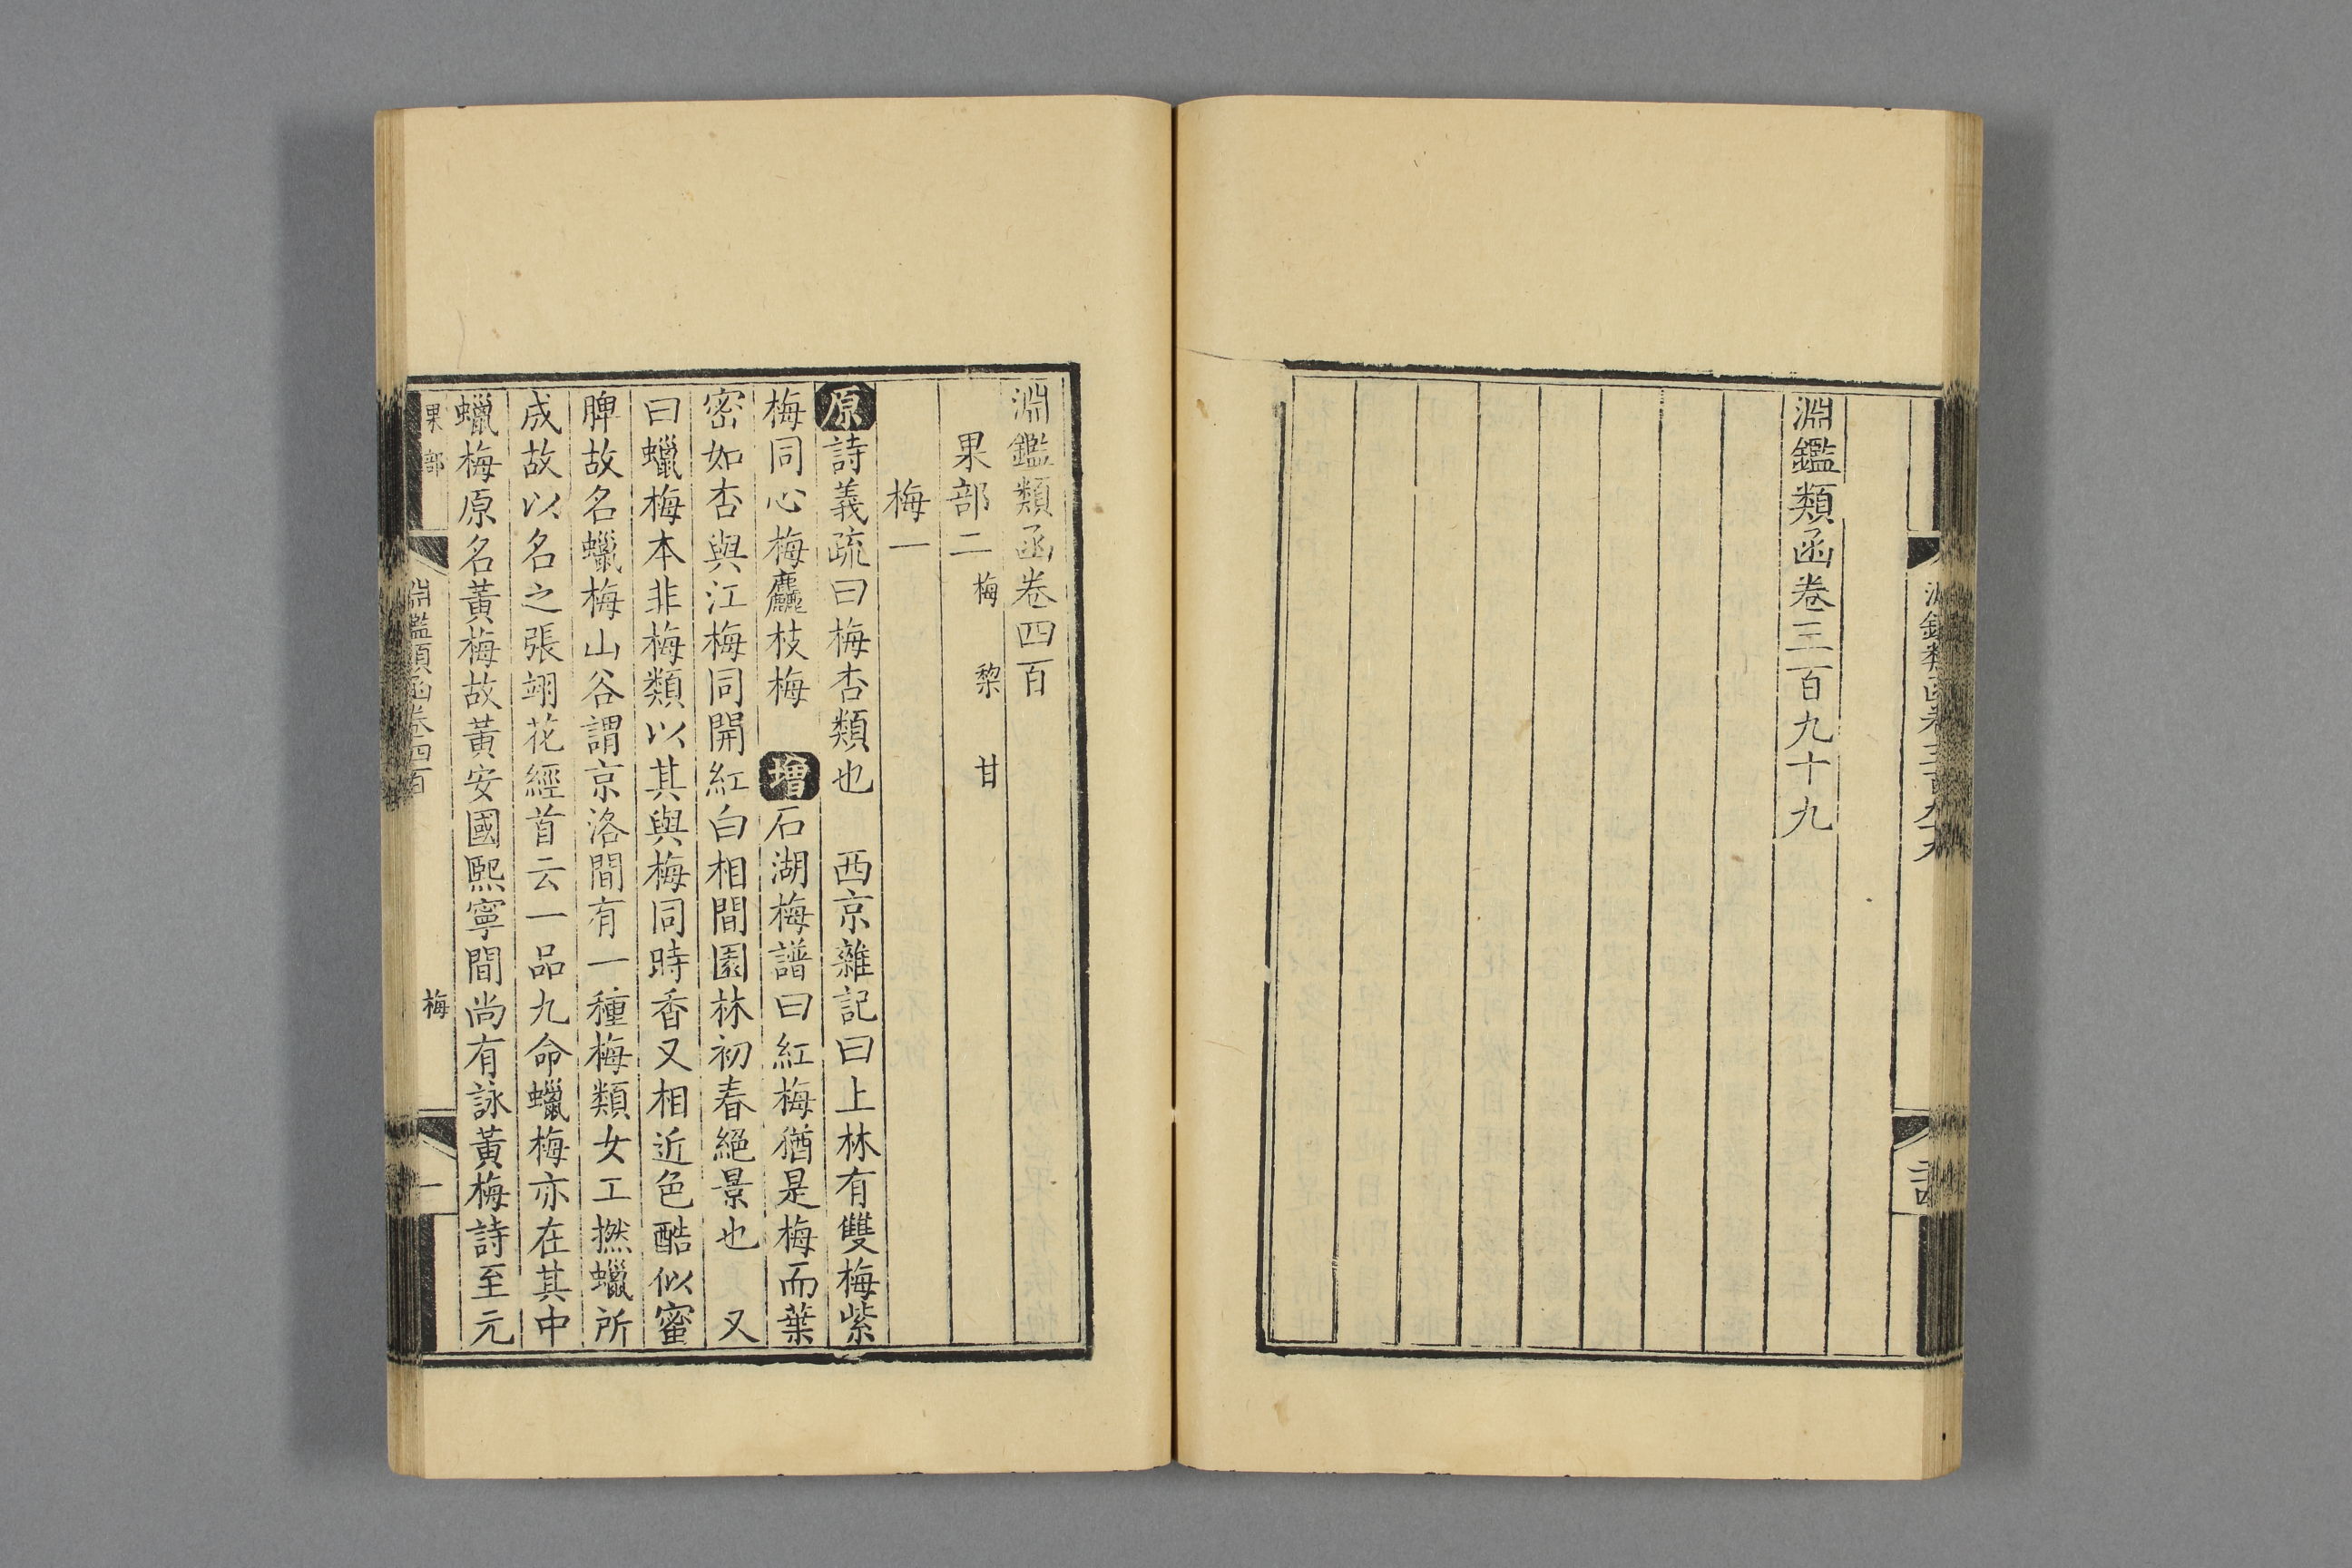 淵鑑類函卷三百九十九
淵鑑類函卷四百
果部二 梅 棃 甘
梅一
原詩義疏曰梅杏類也 西京雜記曰上林有雙梅紫
梅同心梅麤枝梅 增石湖梅譜曰紅梅猶是梅而葉
密如杏與江梅同開紅白相間園林初春絕景也 又
曰蠟梅本非梅類以其與梅同時香又相近色酷似蜜
脾故名蠟梅山谷謂京洛間有一種梅類女工撚蠟所
成故以名之張翊花經首云一品九命蠟梅亦在其中
蠟梅原名黃梅故黃安國熙寧間尚有詠黃梅詩至元
果部 淵鑑類函卷四百 梅 一